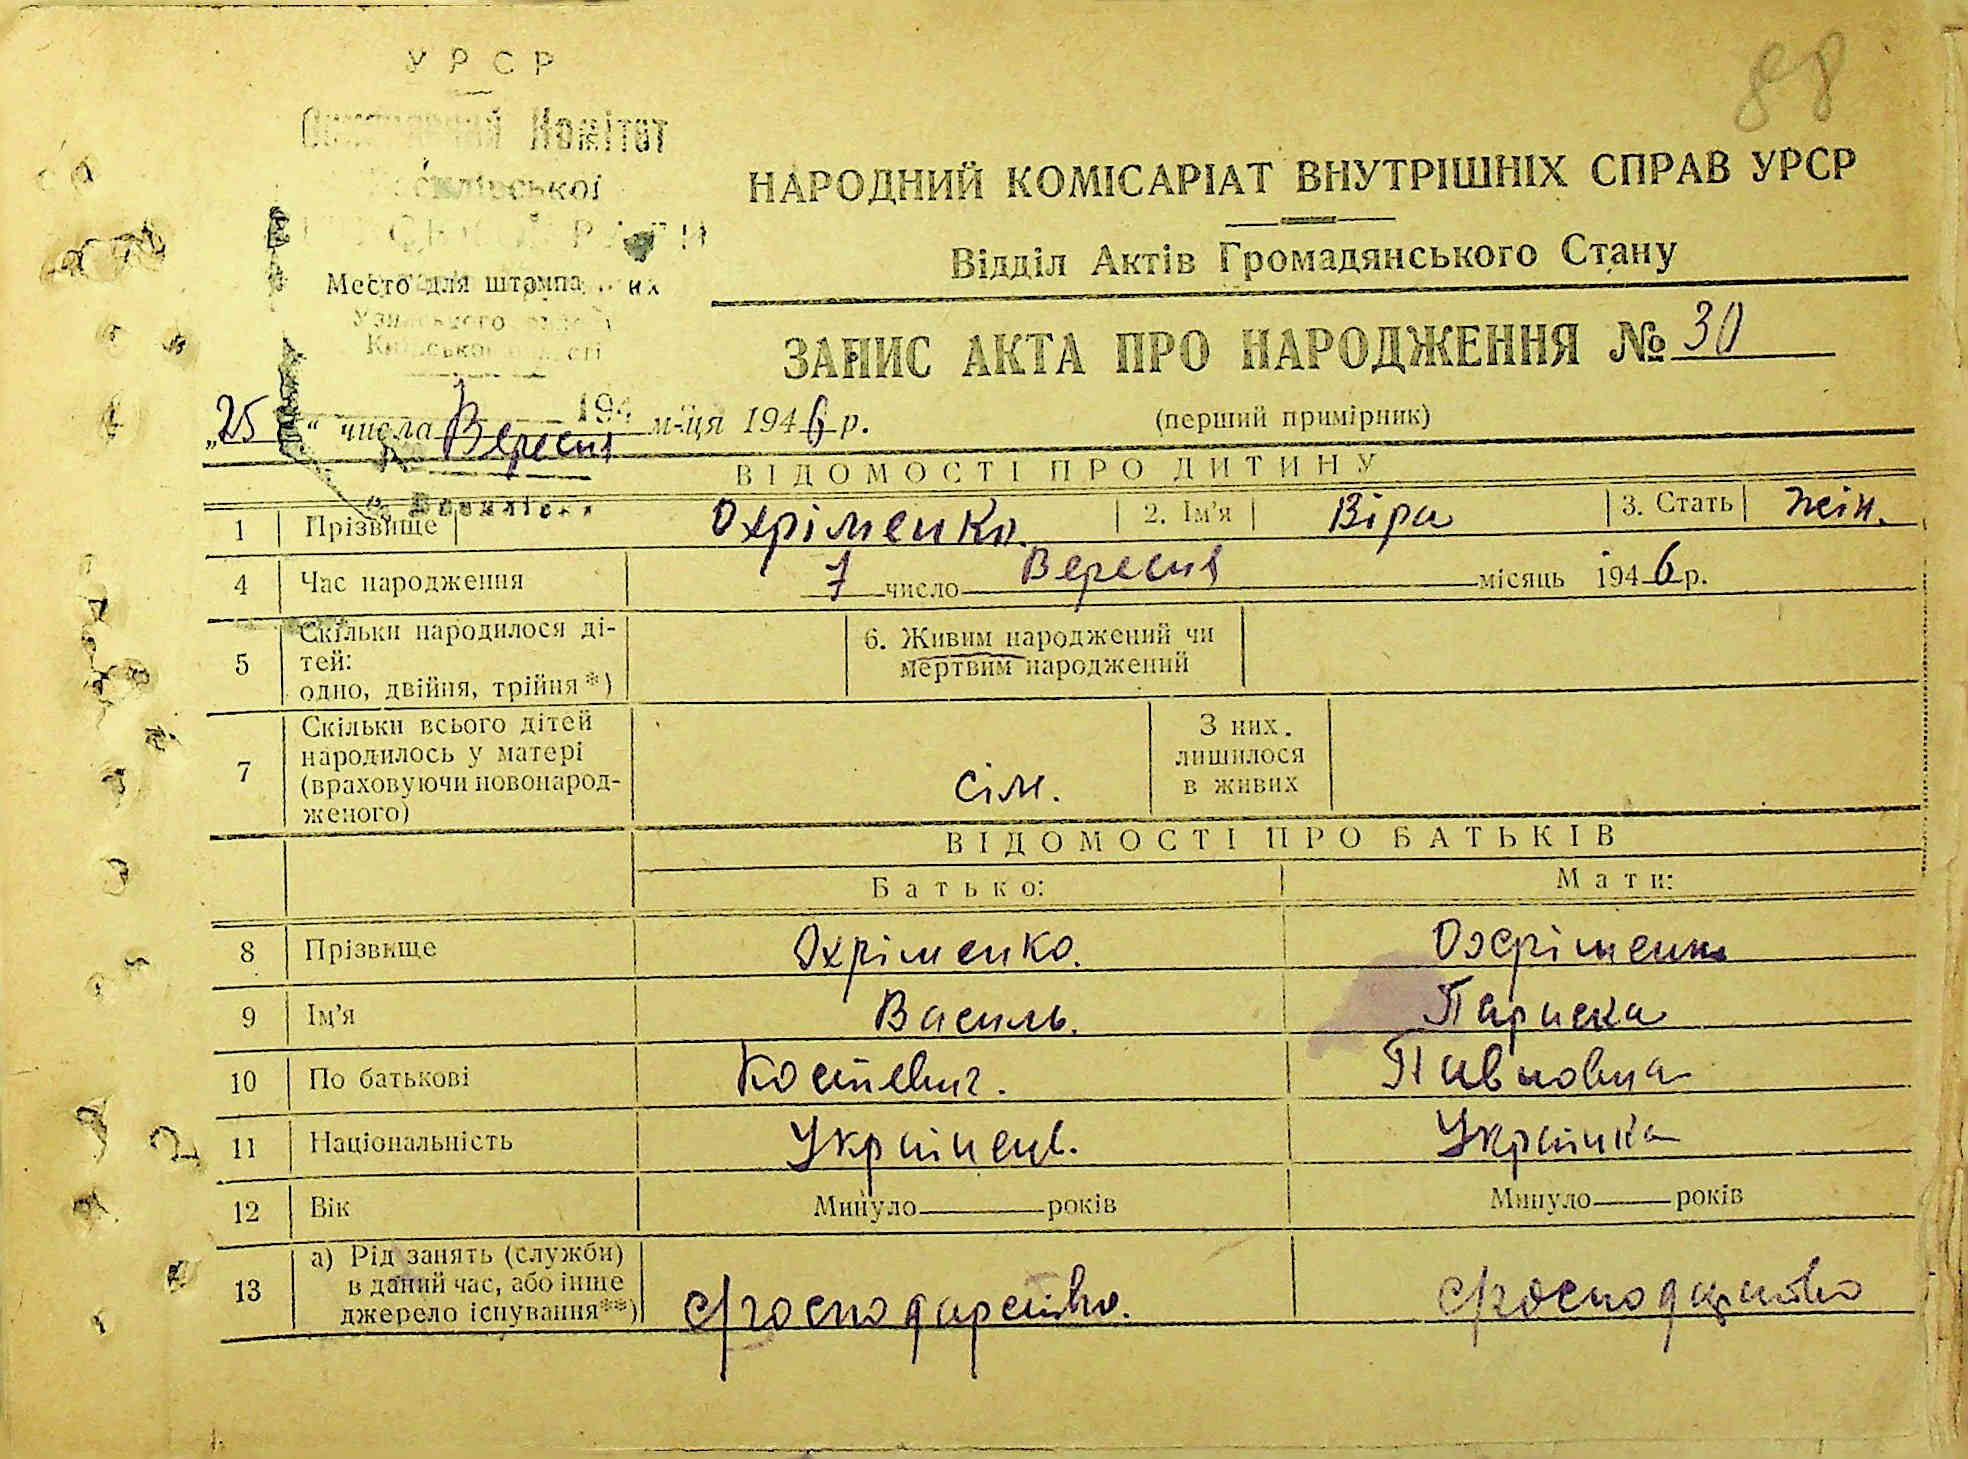 88
У Р С Р
Комітет
НАРОДНИЙ КОМІСАРІАТ ВНУТРІШНІХ СПРАВ УРСР
Відділ Актів Громадянського Стану
Место для штампа
ЗАПИС АКТА ПРО НАРОДЖЕННЯ № 30
(перший примірник)
194
„25“ числа Вересня м-ця 1946 р.
ВІДОМОСТІ ПРО ДИТИНУ
1 Прізвище Охріменко. 2. Ім'я Віра 3. Стать жін.
4 Час народження 7 число Вересня місяць 1946 р.
5 Скільки народилося ді-
тей:
одно, двійня, трійня*)
6. Живим народжений чи
мертвим народжений
7 Скільки всього дітей
народилось у матері
(враховуючи новонарод-
женого)
сім.
З них
лишилося
в живих
ВІДОМОСТІ ПРО БАТЬКІВ
Батько: Мати:
8 Прізвище Охріменко. Охріменко
9 Ім'я Василь. Париска
10 По батькові Костевич. Павловна
11 Національність Українець. Українка
12 Вік Минуло років Минуло років
13 а) Рід занять (служби)
в даний час, або інше
джерело існування**)
с/господарство. с/господарство
2